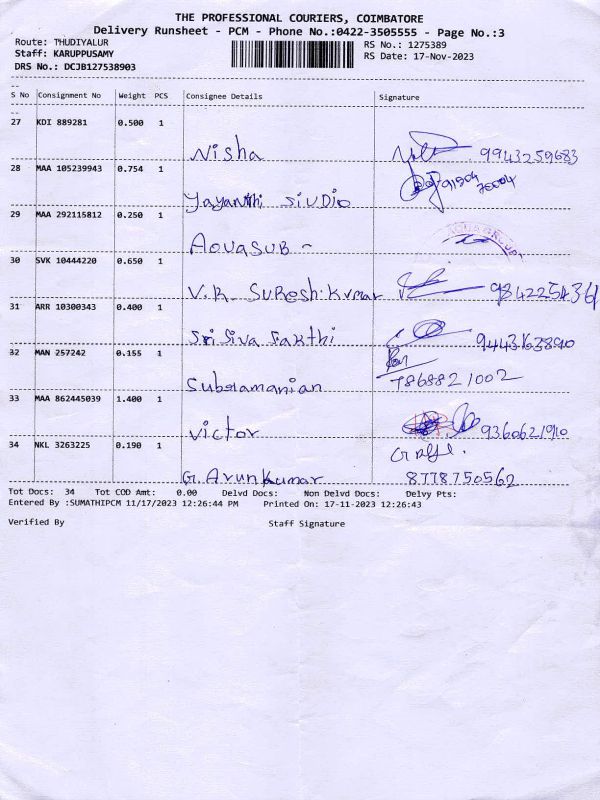 THE PROFESSIONAL COURIERS, COIMBATORE
Delivery Runsheet - PCM - Phone No.:0422-3505555 - Page No.:3
Route: THUDIYALUR RS No.: 1275389
Staff: KARUPPUSAMY RS Date: 17-Nov-2023
DRS No.: DCJB127538903
S No Consignment No Weight PCS Consignee Details Signature
27 KDI 889281 0.500 1
Nisha 9943259683
28 MAA 105239943 0.754 1
Jayanthi SIUDIO
29 MAA 292115812 0.250 1
AQUASUB -
30 SVK 10444220 0.650 1
V.R. SuResh.kumar 9842254361
31 ARR 10300343 0.400 1
Sri Siva Sakthi 9443163890
32 MAN 257242 0.155 1
Subramanian 7868821002
33 MAA 862445039 1.400 1
Victor 9360621910
34 NKL 3263225 0.190 1
G. Arunkumar 8778750562
Tot Docs: 34 Tot COD Amt: 0.00 Delvd Docs: Non Delvd Docs: Delvy Pts:
Entered By :SUMATHIPCM 11/17/2023 12:26:44 PM Printed On: 17-11-2023 12:26:43
Verified By Staff Signature